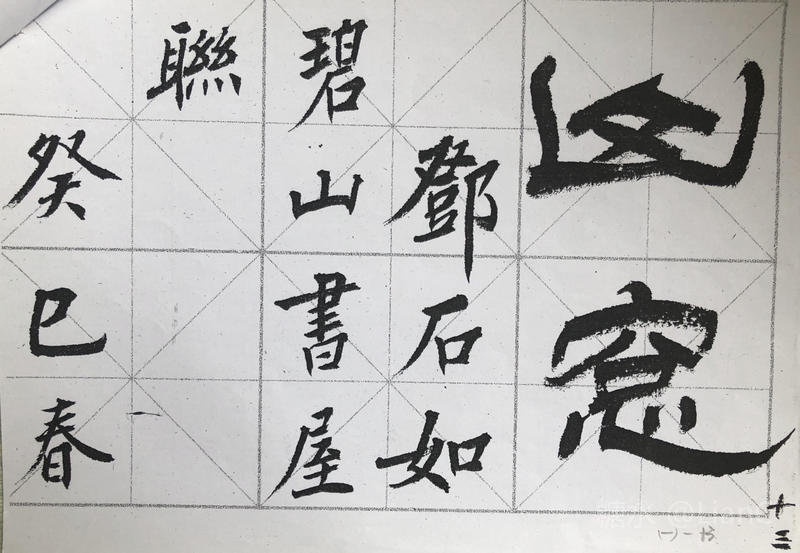 十三
山窓
鄧石如
碧山書屋
聯
癸巳春